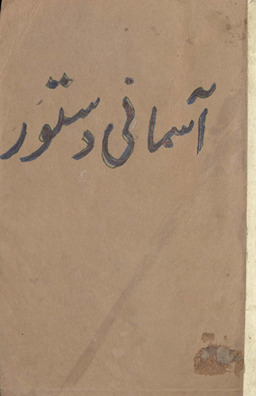 آسمانی دستور